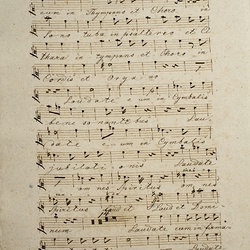 eum in Thympano et Choro in
So no tuba in psalterio et Ci
thara in tympano et Choro in
Cordis et Orga no
Laudate eum in Cymbalis
bene so nantibus Lau
date eum in Cymbalis
jubilate o nis Laudate
om nes Spiritus om nes
Spiritus laudet Domi
num Laudate eum
Laudate